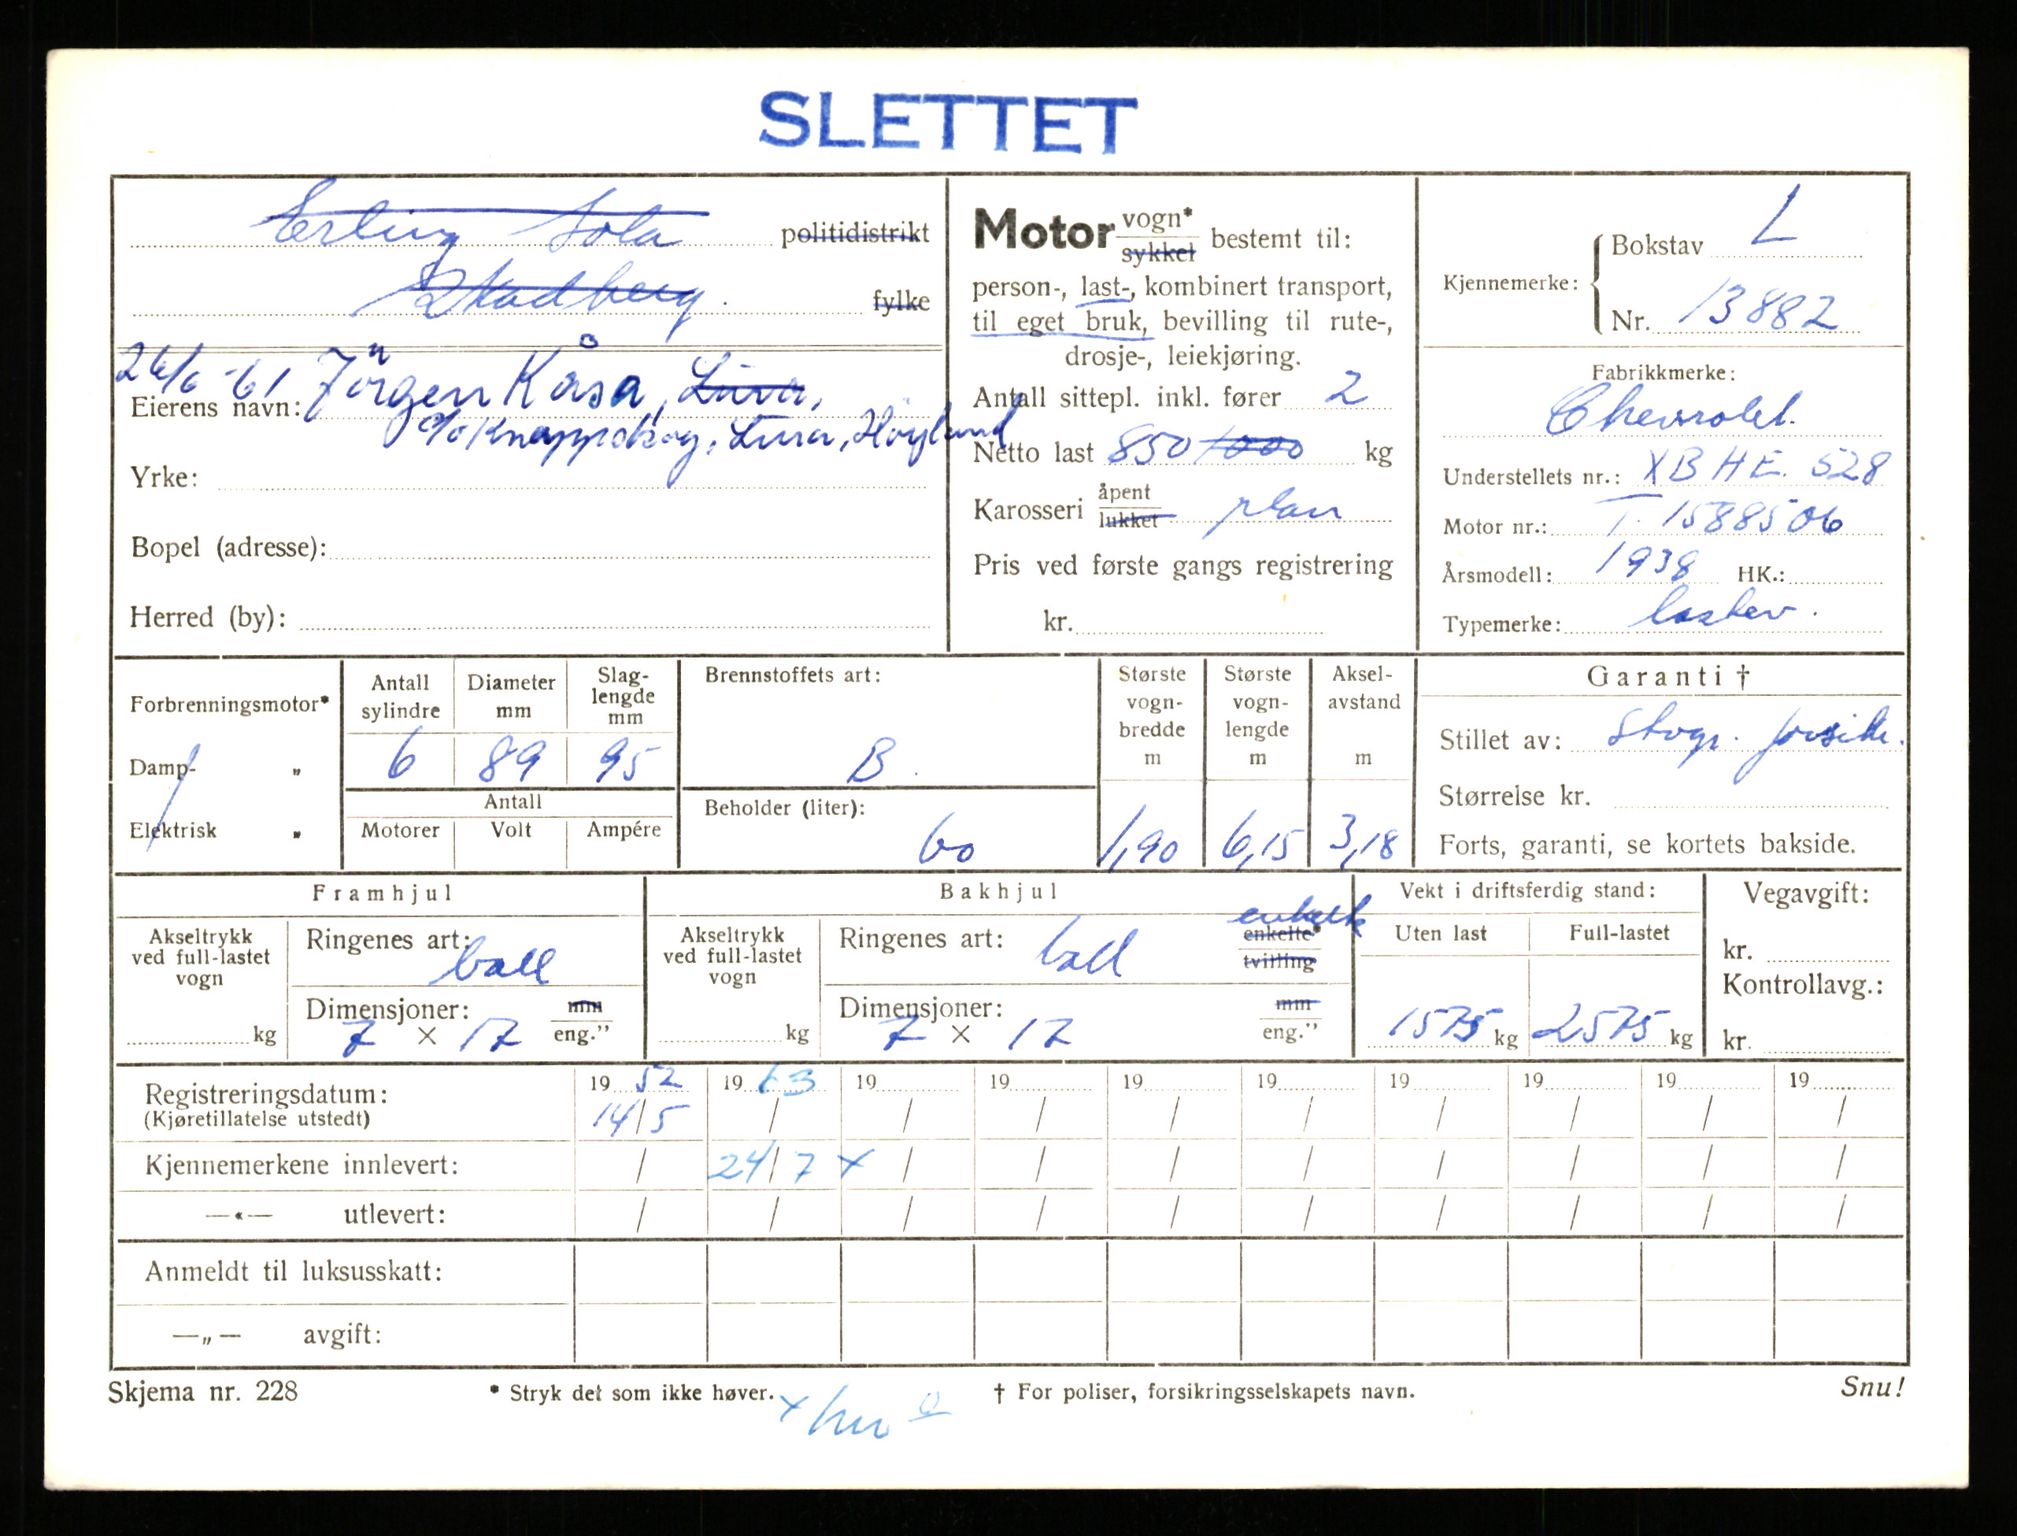 SLETTET
Erling Sola politidistrikt
Stadberg. fylke
26/6-61 Jörgen Kåsa, Lura,
Eierens navn:
c/o Knappskog, Lura, Höyland
Yrke:
Bopel (adresse):
Herred (by):
Motor vogn* sykkel bestemt til:
person-, last-, kombinert transport,
til eget bruk, bevilling til rute-,
drosje-, leiekjøring.
Antall sittepl. inkl. fører 2
Netto last 850 1000 kg
Karosseri åpent lukket plan
Pris ved første gangs registrering
kr.
Kjennemerke: Bokstav L
Nr. 13882
Fabrikkmerke:
Chevrolet.
Understellets nr.: XBHE. 528
Motor nr.: T. 1588506
Årsmodell: 1938 HK.:
Typemerke: lastev.
Forbrenningsmotor*
Damp- „
Elektrisk „
Antall sylindre
6
Diameter mm
89
Slag- lengde mm
95
Antall
Motorer Volt Ampére
Brennstoffets art:
B.
Beholder (liter):
60
Største vogn- bredde m
1,90
Største vogn- lengde m
6,15
Aksel- avstand m
3,18
Garanti †
Stillet av: Stvgr. forsikr.
Størrelse kr.
Forts, garanti, se kortets bakside.
Framhjul
Akseltrykk ved full-lastet vogn
kg
Ringenes art: ball
Dimensjoner: mm
7 × 17 eng."
Bakhjul
Akseltrykk ved full-lastet vogn
kg
Ringenes art: ball enkelt
enkelte*
tvilling
Dimensjoner: mm
7 × 17 eng."
Vekt i driftsferdig stand:
Uten last Full-lastet
1575 kg 2575 kg
Vegavgift:
kr.
Kontrollavg.:
kr.
Registreringsdatum: 19 52 19 63 19 19 19 19 19 19 19 19
(Kjøretillatelse utstedt) 14/5 / / / / / / / / /
Kjennemerkene innlevert: / 24/7 x / / / / / / / /
—«— utlevert: / / / / / / / / / /
Anmeldt til luksusskatt:
—„— avgift:
Skjema nr. 228 * Stryk det som ikke høver. † For poliser, forsikringsselskapets navn. Snu!